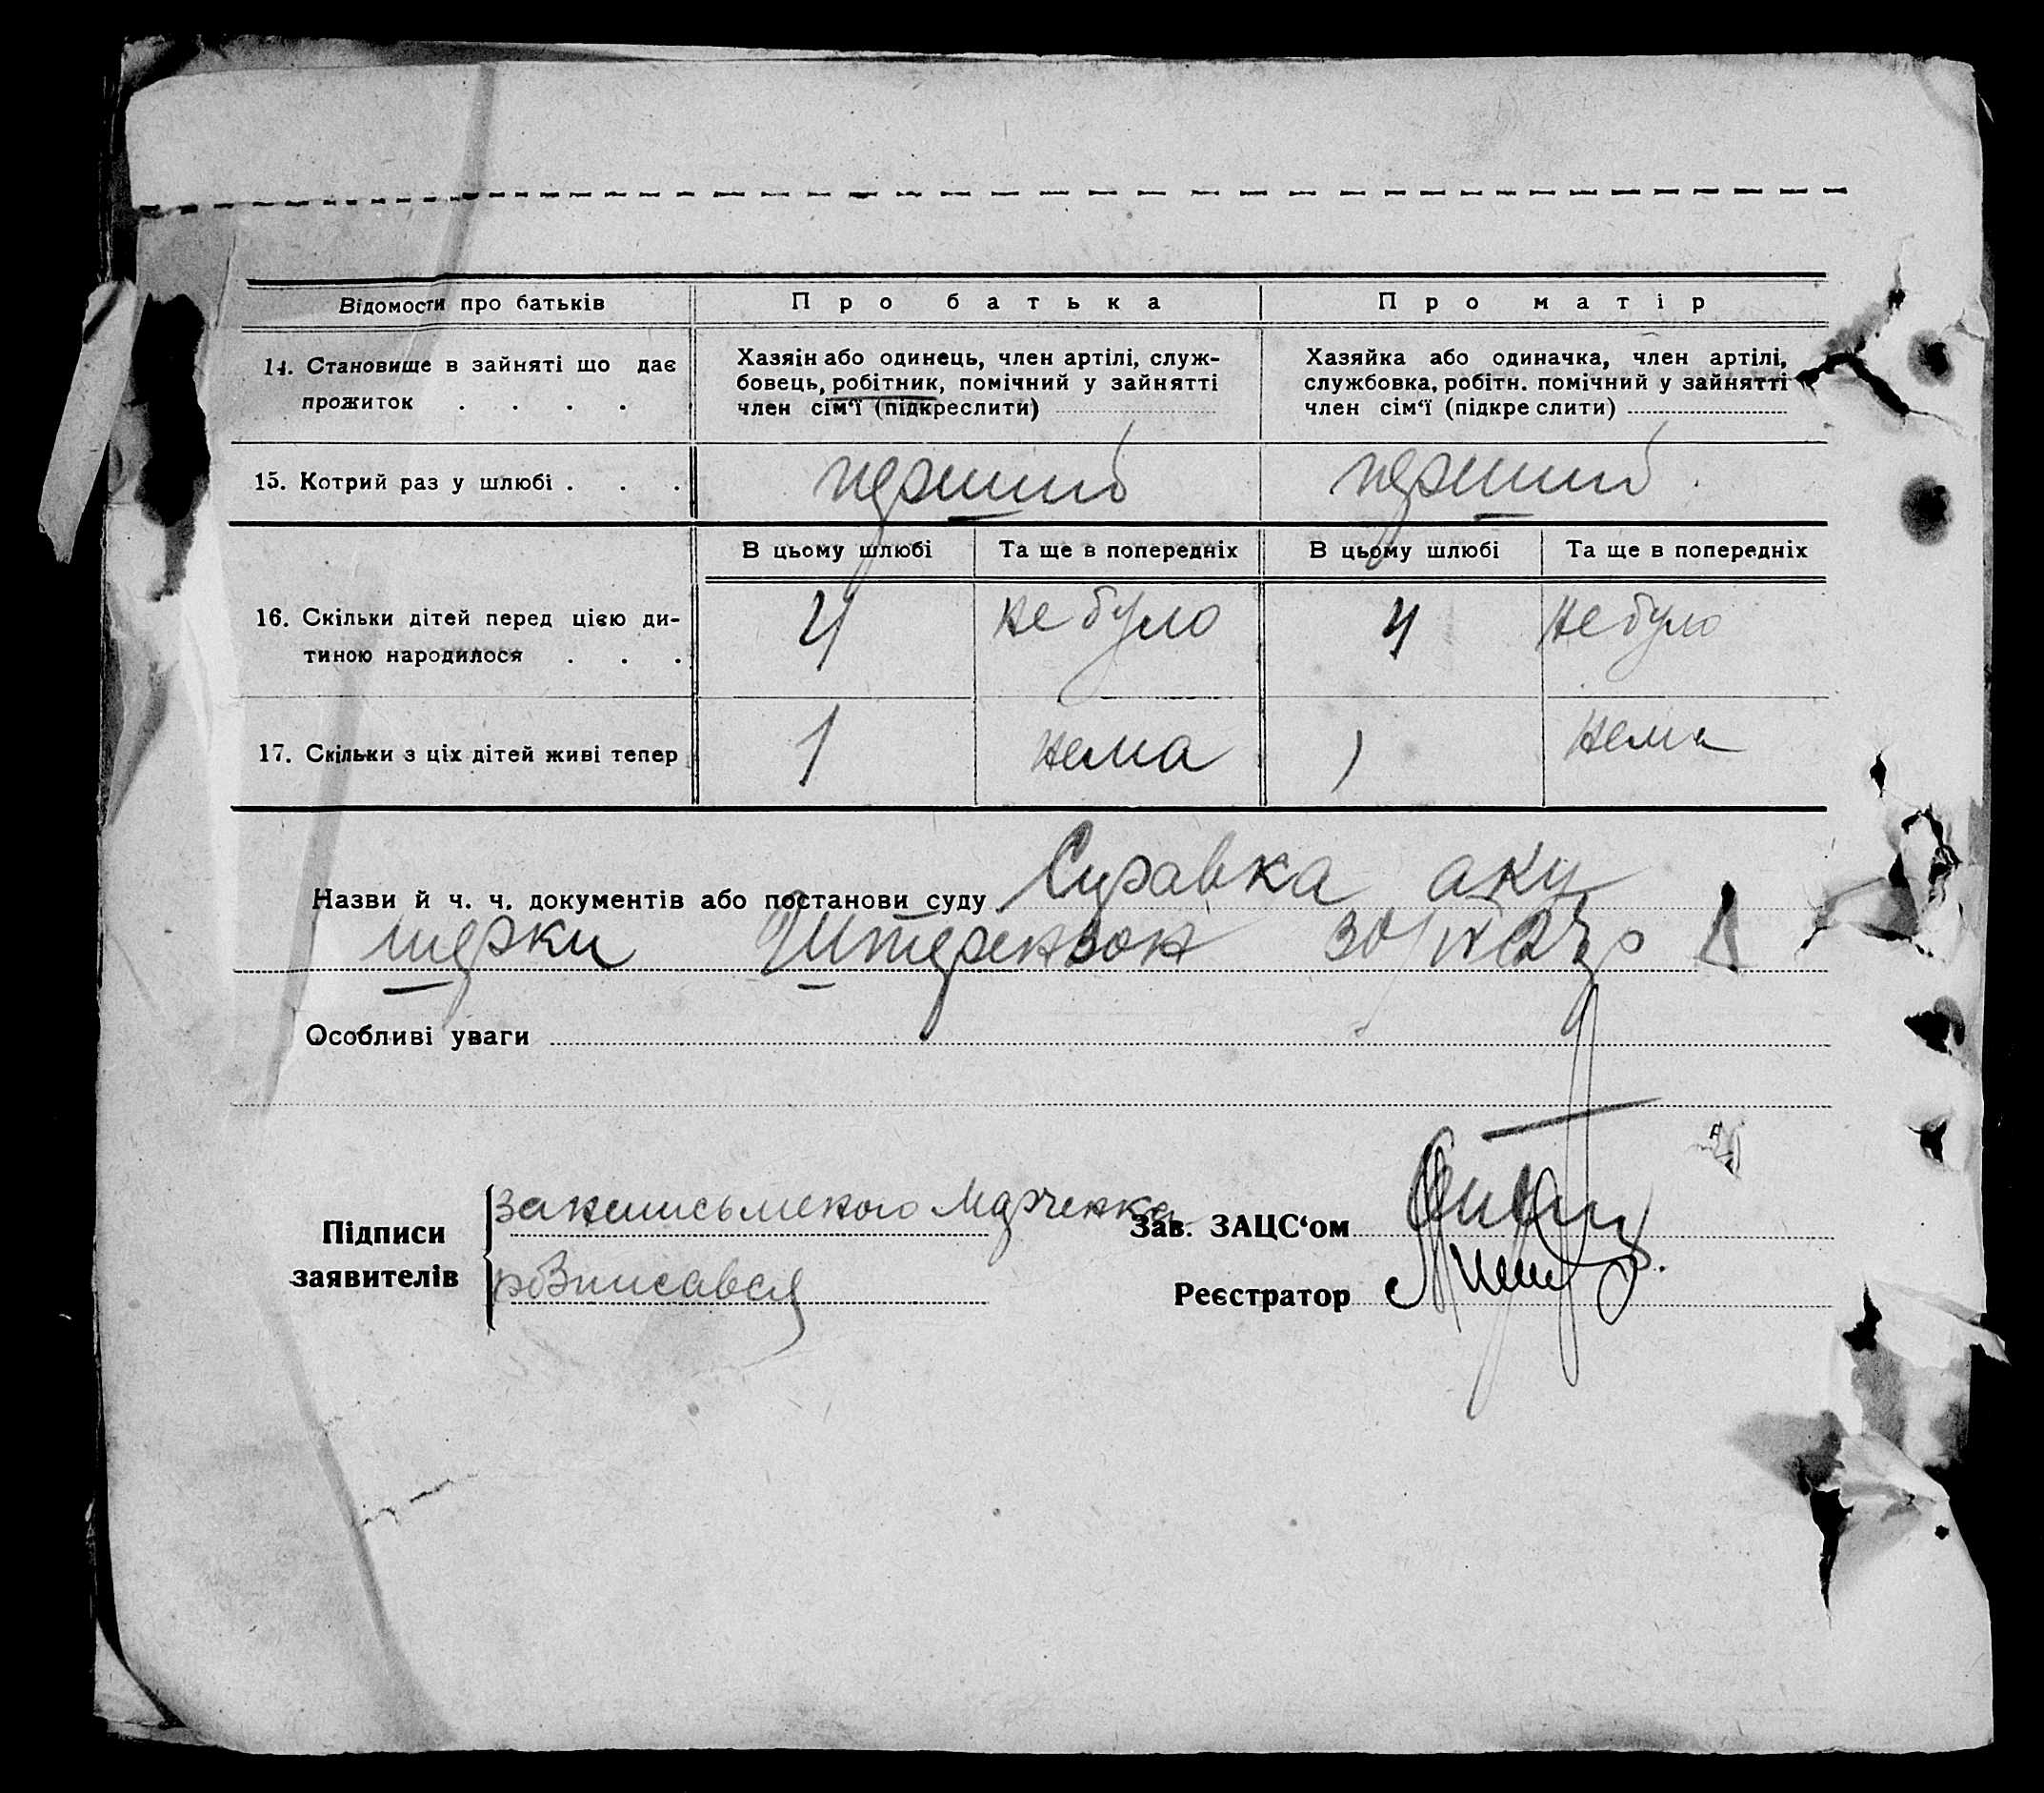 Відомости про батьків Про батька Про матір
14. Становище в зайняті що дає прожиток . . . .
Хазяін або одинець, член артілі, служ-
бовець, робітник, помічний у зайнятті
член сім‘ї (підкреслити)
Хазяйка або одиначка, член артілі,
службовка, робітн. помічний у зайнятті
член сім‘ї (підкре слити)
15. Котрий раз у шлюбі . . . перший перший
В цьому шлюбі Та ще в попередніх В цьому шлюбі Та ще в попередніх
16. Скільки дітей перед цією ди-
тиною народилося . . .
4 не було 4 не було
17. Скільки з ціх дітей живі тепер 1 нема 1 нема
Назви й ч. ч. документів або постанови суду Справка аку
шерки Штерензон 30/IV
Особливі уваги
Підписи
заявителів
за неписьменого Марченка
розписався
Зав. ЗАЦС‘ом
Реєстратор